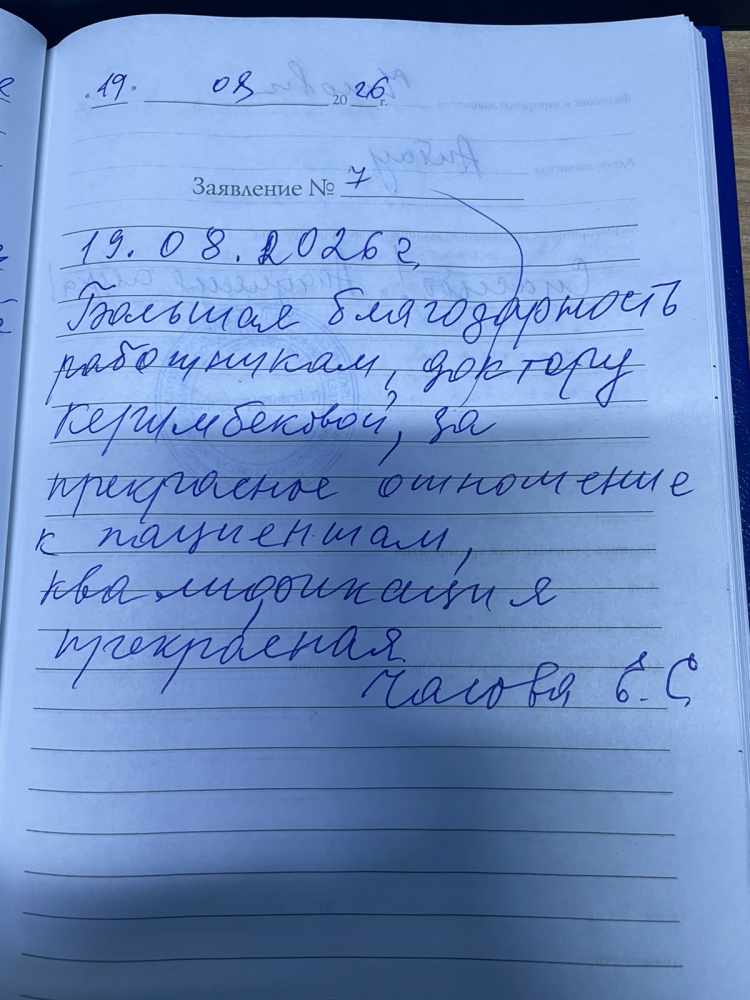 19. 08 2026 г.
Заявление № 7
19. 08. 2026 г.
Большая благодарность
работникам, доктору
Керимбековой, за
прекрасное отношение
к пациентам,
квалификация
прекрасная
Часова Е. С